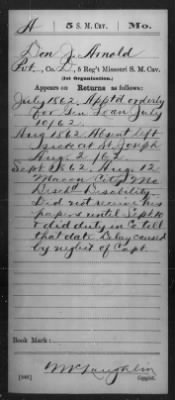 A | 5 S. M. Cav. | Mo.
Don J. Arnold
Pvt., Co. D, 5 Reg't Missouri S. M. Cav.
(1st Organization.)
Appears on Returns as follows:
July 1862. Apptd orderly
for Gen Loan July
10/62
Aug 1862. Absent left
sick at St. Joseph
Aug 2/62
Sept 1862. Aug 12
Macon City, Mo
Disch. Disability
Did not receive his
papers until Sept 10
& did duty in Co till
that date. Delay caused
by neglect of Capt.
Book Mark:
McLaughlin
(546) Copyist.